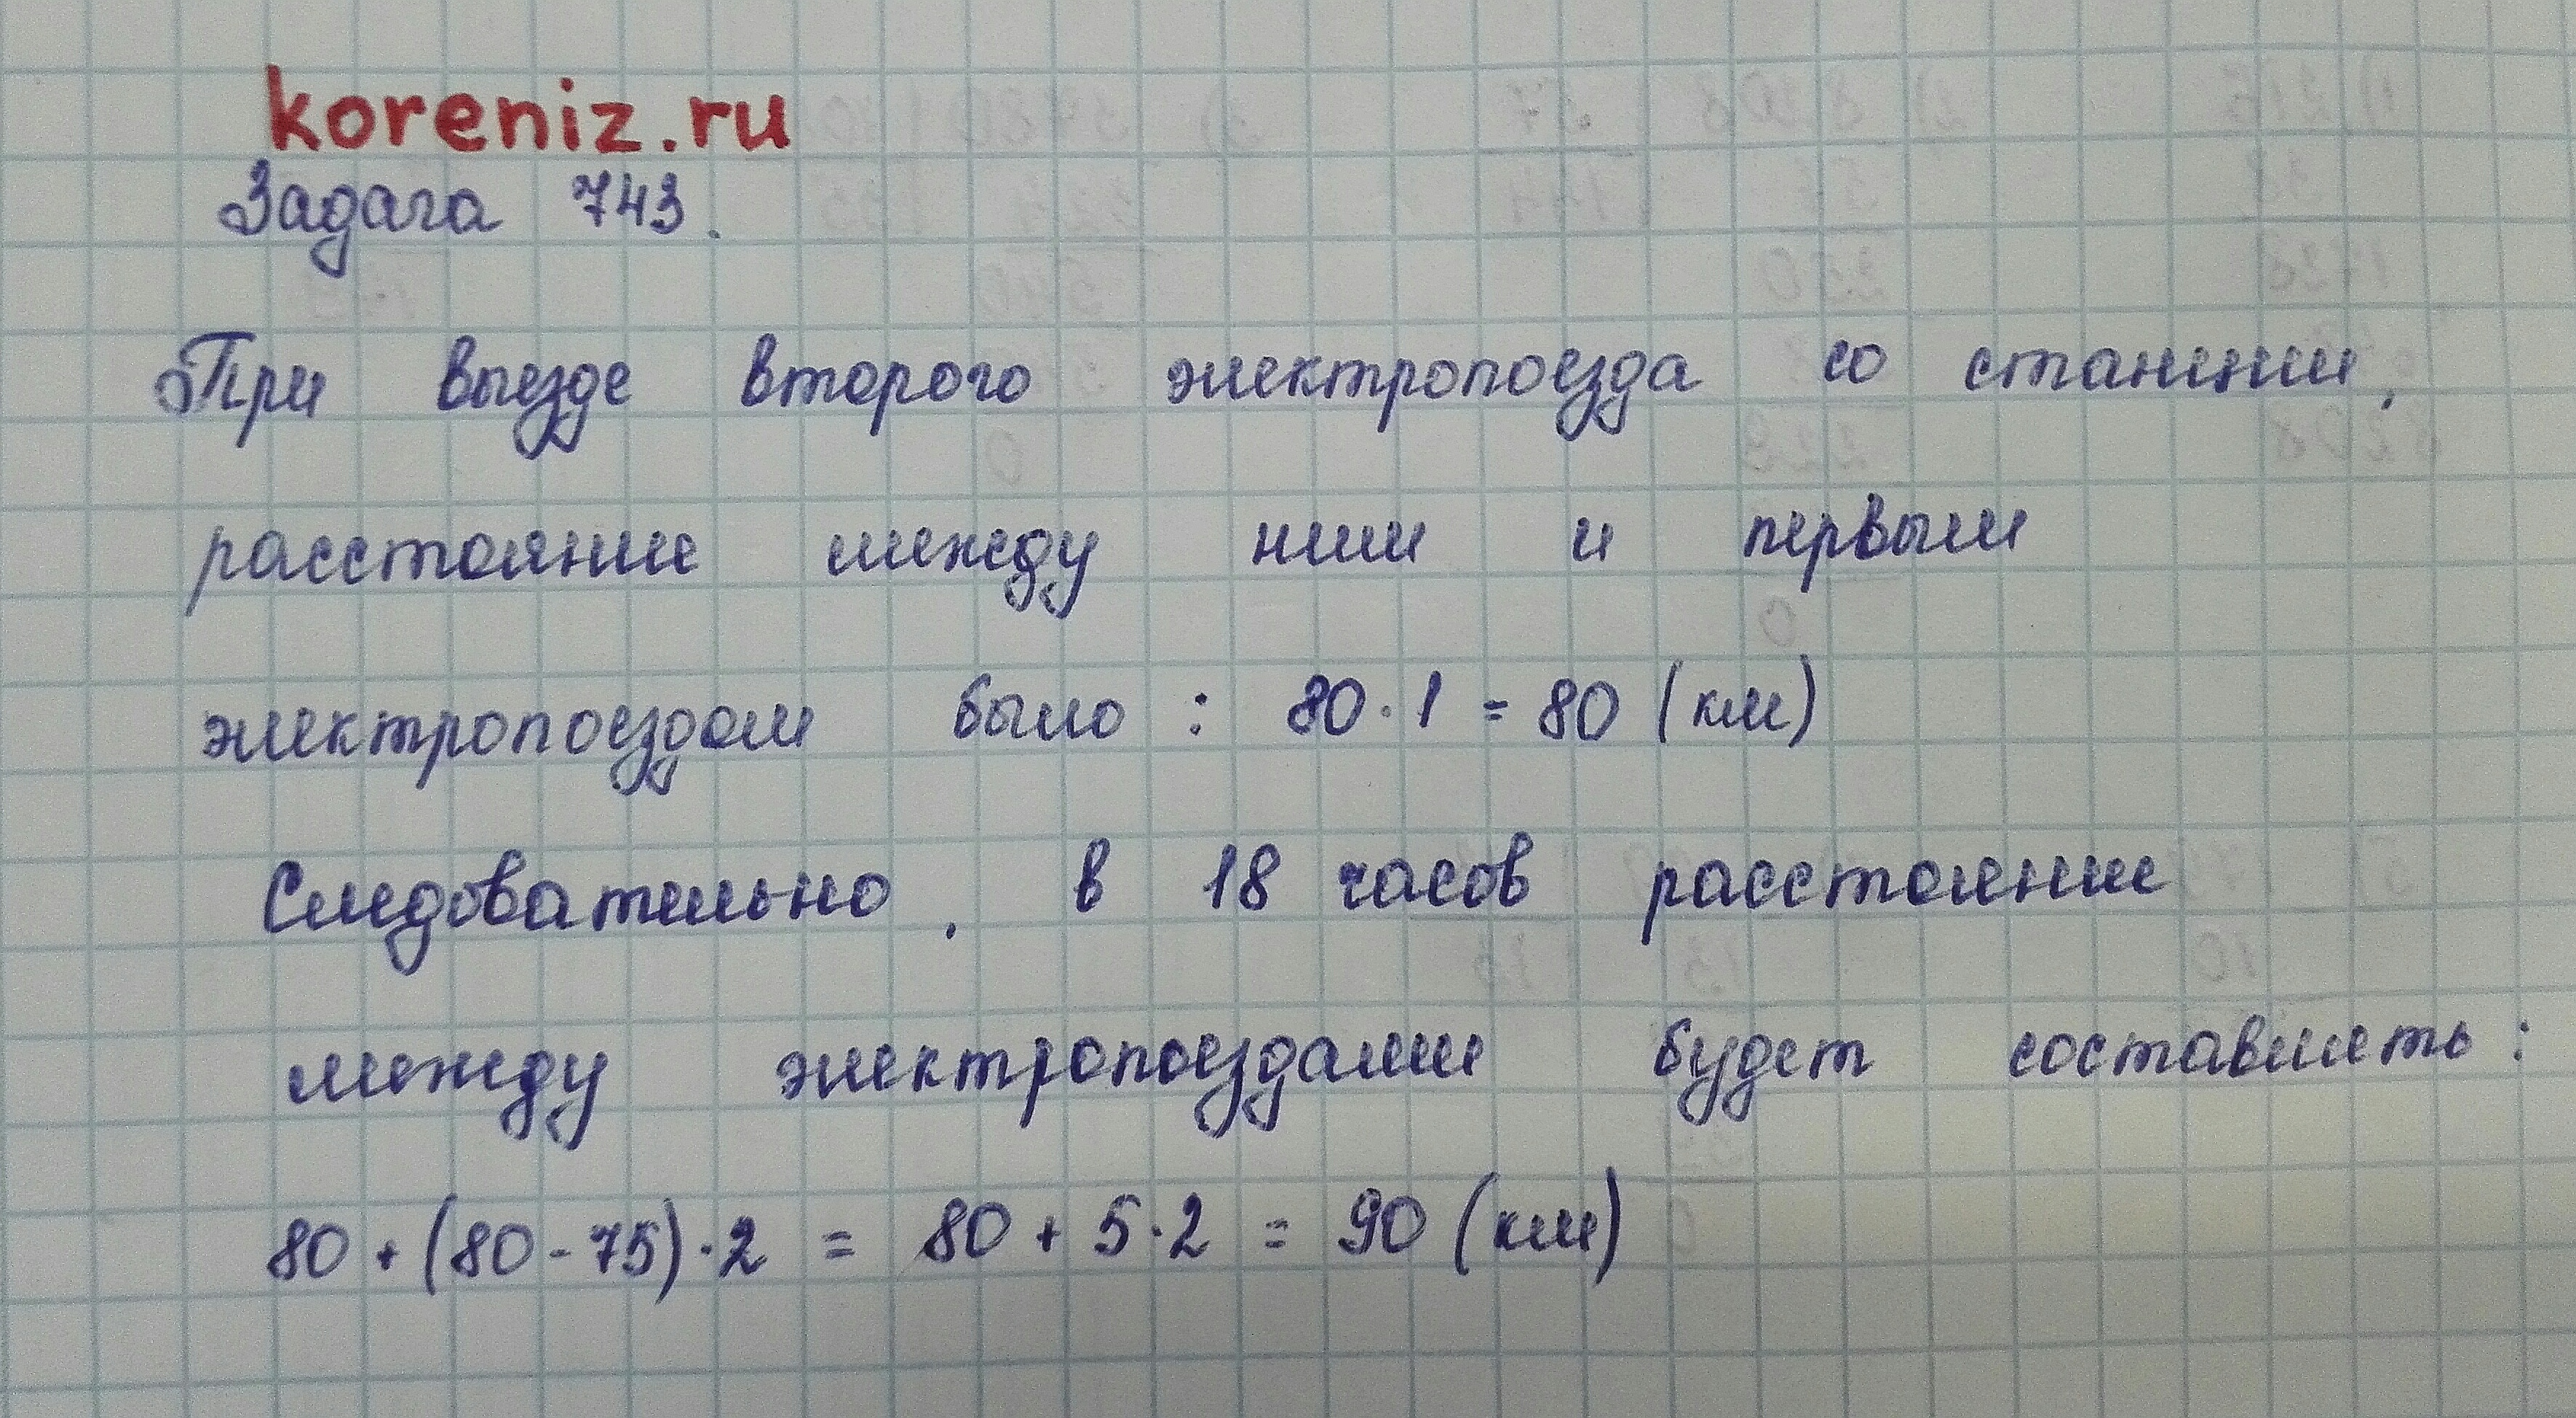 koreniz.ru
Задача 743.
При выезде второго электропоезда со станции,
расстояние между ним и первым
электропоездом было : 80 · 1 = 80 (км)
Следовательно, в 18 часов расстояние
между электропоездами будет составлять :
80 + (80 - 75) · 2 = 80 + 5 · 2 = 90 (км)